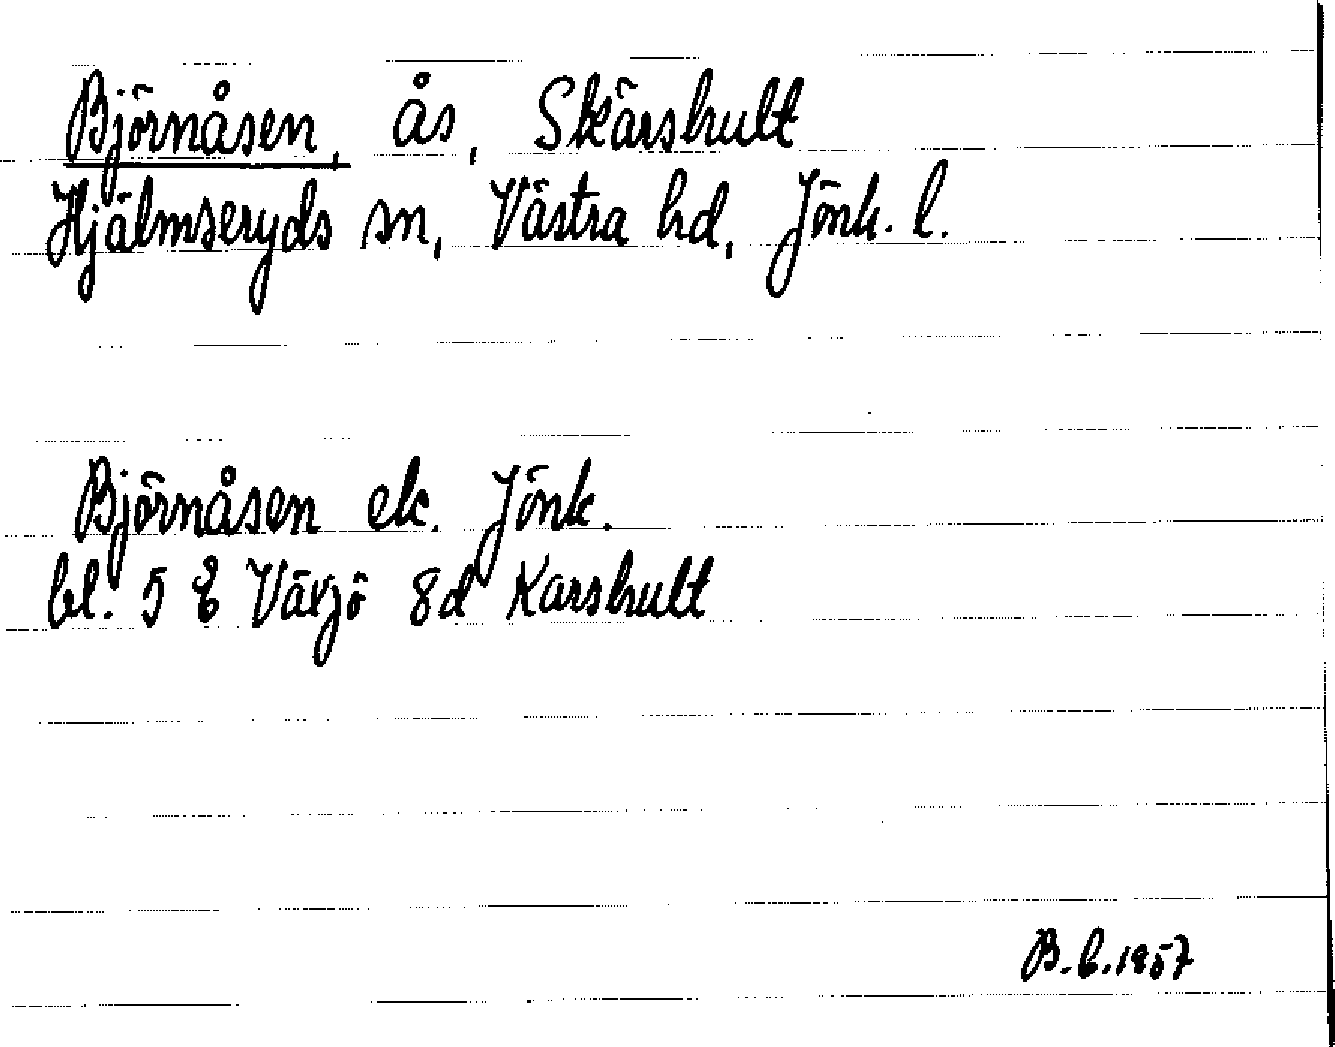 Björnåsen, ås, Skärshult
Hjälmseryds sn, Västra hd, Jönk. l.
Björnåsen ek. Jönk.
bl. 5 E Växjö 8d Karshult
B.L.1957